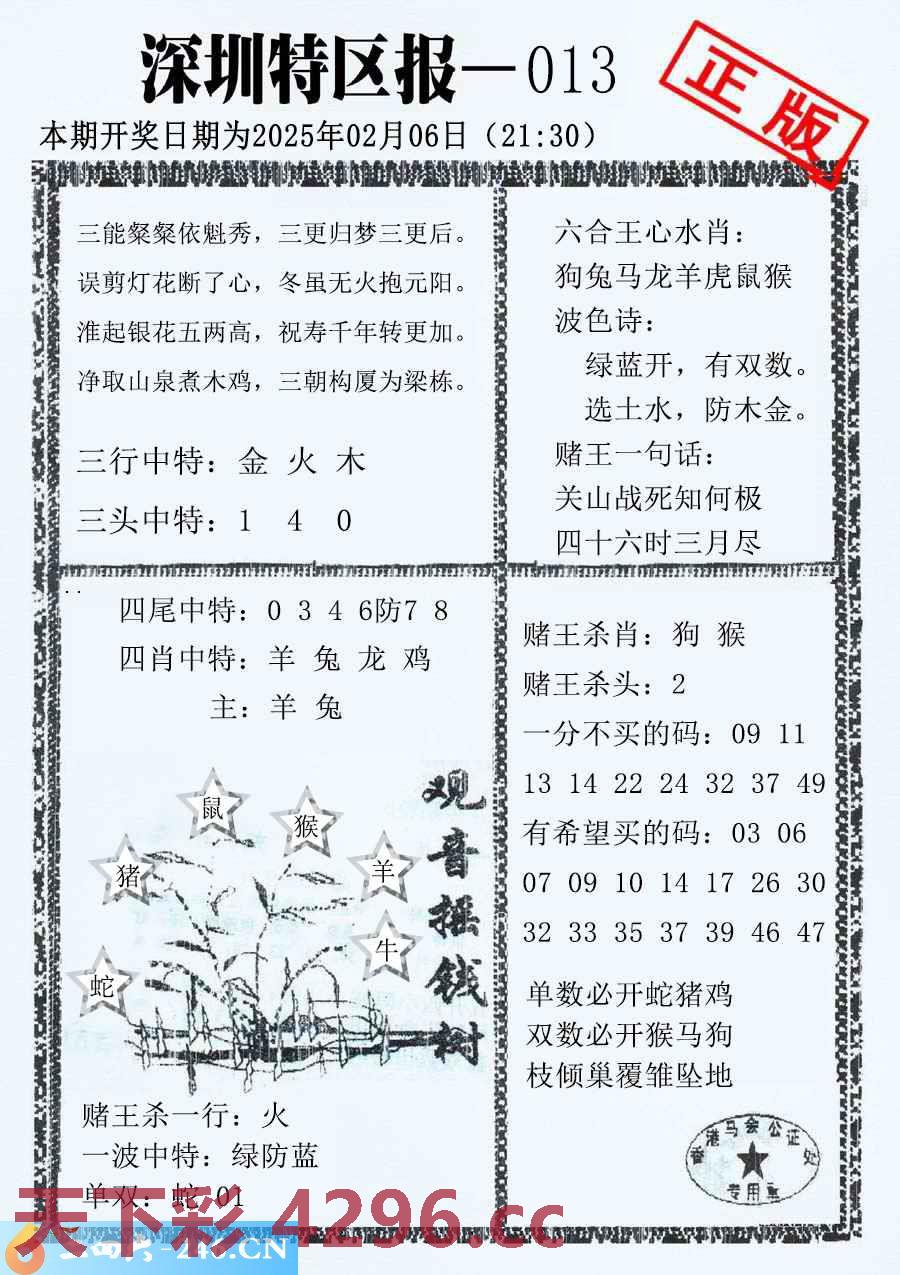 深圳特区报—013
正版
本期开奖日期为2025年02月06日（21:30）
三能粲粲依魁秀，三更归梦三更后。
误剪灯花断了心，冬虽无火抱元阳。
淮起银花五两高，祝寿千年转更加。
净取山泉煮木鸡，三朝构厦为梁栋。
三行中特：金 火 木
三头中特：1 4 0
六合王心水肖：
狗兔马龙羊虎鼠猴
波色诗：
绿蓝开，有双数。
选土水，防木金。
赌王一句话：
关山战死知何极
四十六时三月尽
四尾中特：0 3 4 6防7 8
四肖中特：羊 兔 龙 鸡
主：羊 兔
鼠
猴
猪
羊
牛
蛇
观音摇钱树
赌王杀一行：火
一波中特：绿防蓝
单双：蛇 01
赌王杀肖：狗 猴
赌王杀头：2
一分不买的码：09 11
13 14 22 24 32 37 49
有希望买的码：03 06
07 09 10 14 17 26 30
32 33 35 37 39 46 47
单数必开蛇猪鸡
双数必开猴马狗
枝倾巢覆雏坠地
香港马会公证处
专用章
天下彩 4296.cc
-246.CN